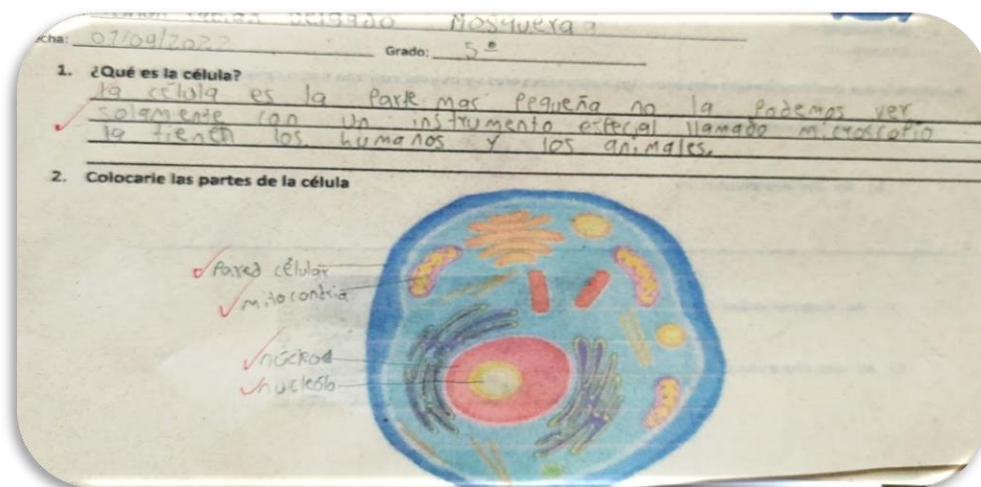 Mosquera
cha: 07/09/2022
Grado: 5º
1. ¿Qué es la célula?
la célula es la parte mas pequeña no la podemos ver
solamente con un instrumento especial llamado microscopio
la tienen los humanos y los animales.
2. Colocarle las partes de la célula
Pared célular
mitocondria
núcleo
nucleólo